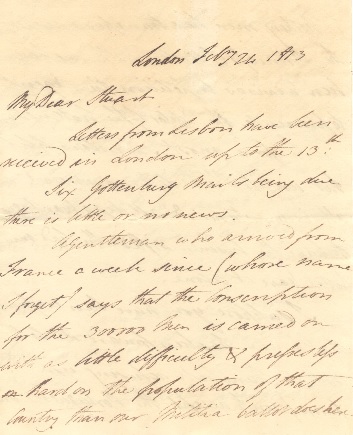 London Feby 24 1813
My Dear Stuart
Letters from Lisbon have been
received in London up to the 13th.
Six Gottenburg Mails being due
there is little or no news.
A Gentleman who arrived from
France a week since (whose name
I forget) says that the Conscription
for the 300000 Men is carried on
with as little difficulty & presses less
on hard on the population of that
Country than our Militia ballot does here